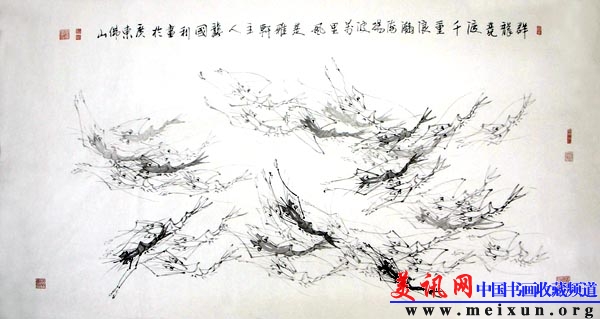 群龍竞渡千重浪海波万里風是雅軒主人龔國利畫於廣東佛山
美讯网 中国书画收藏频道
www.meixun.org